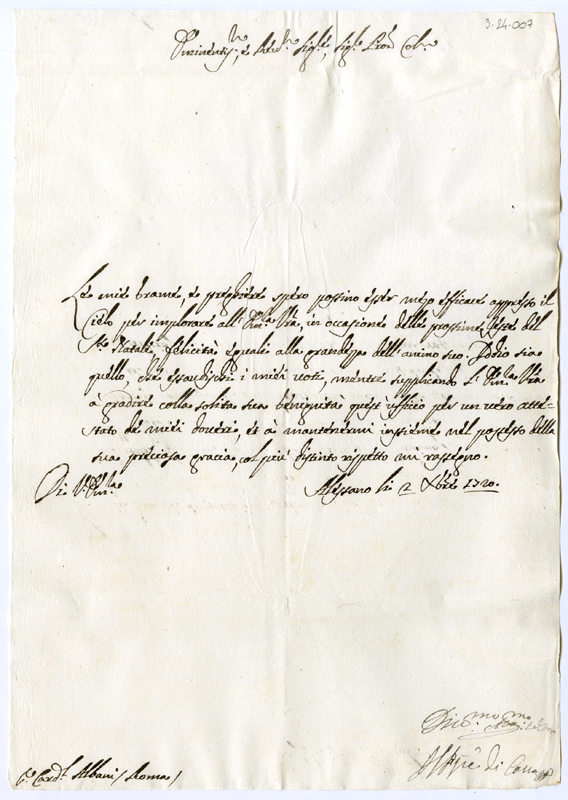 3-24-007
Eminentis.mo, e Reu.mo Sig.re, Sig.re Pron Col.mo
Le mie brame, e preghiere spero possino esser mezo efficace appresso il
Cielo per implorare all'Em.za Vra, in occasione delle prossime feste del
S.to Natale felicità eguali alla grandezza dell'animo suo. Iddio sia
quello, che essaudischi i miei uoti, mentre supplicando l'Em.za Vra
à gradire colla solita sua benignità quest'ufficio per un uero atte-
stato de miei doueri, et à mantenermi insieme nel possesso della
sua preziosa grazia, col più distinto rispetto mi rassegno.
Di V. Em.za
Alessano li 2 Xbre 1720.
S.r Card.l Albani / Roma /